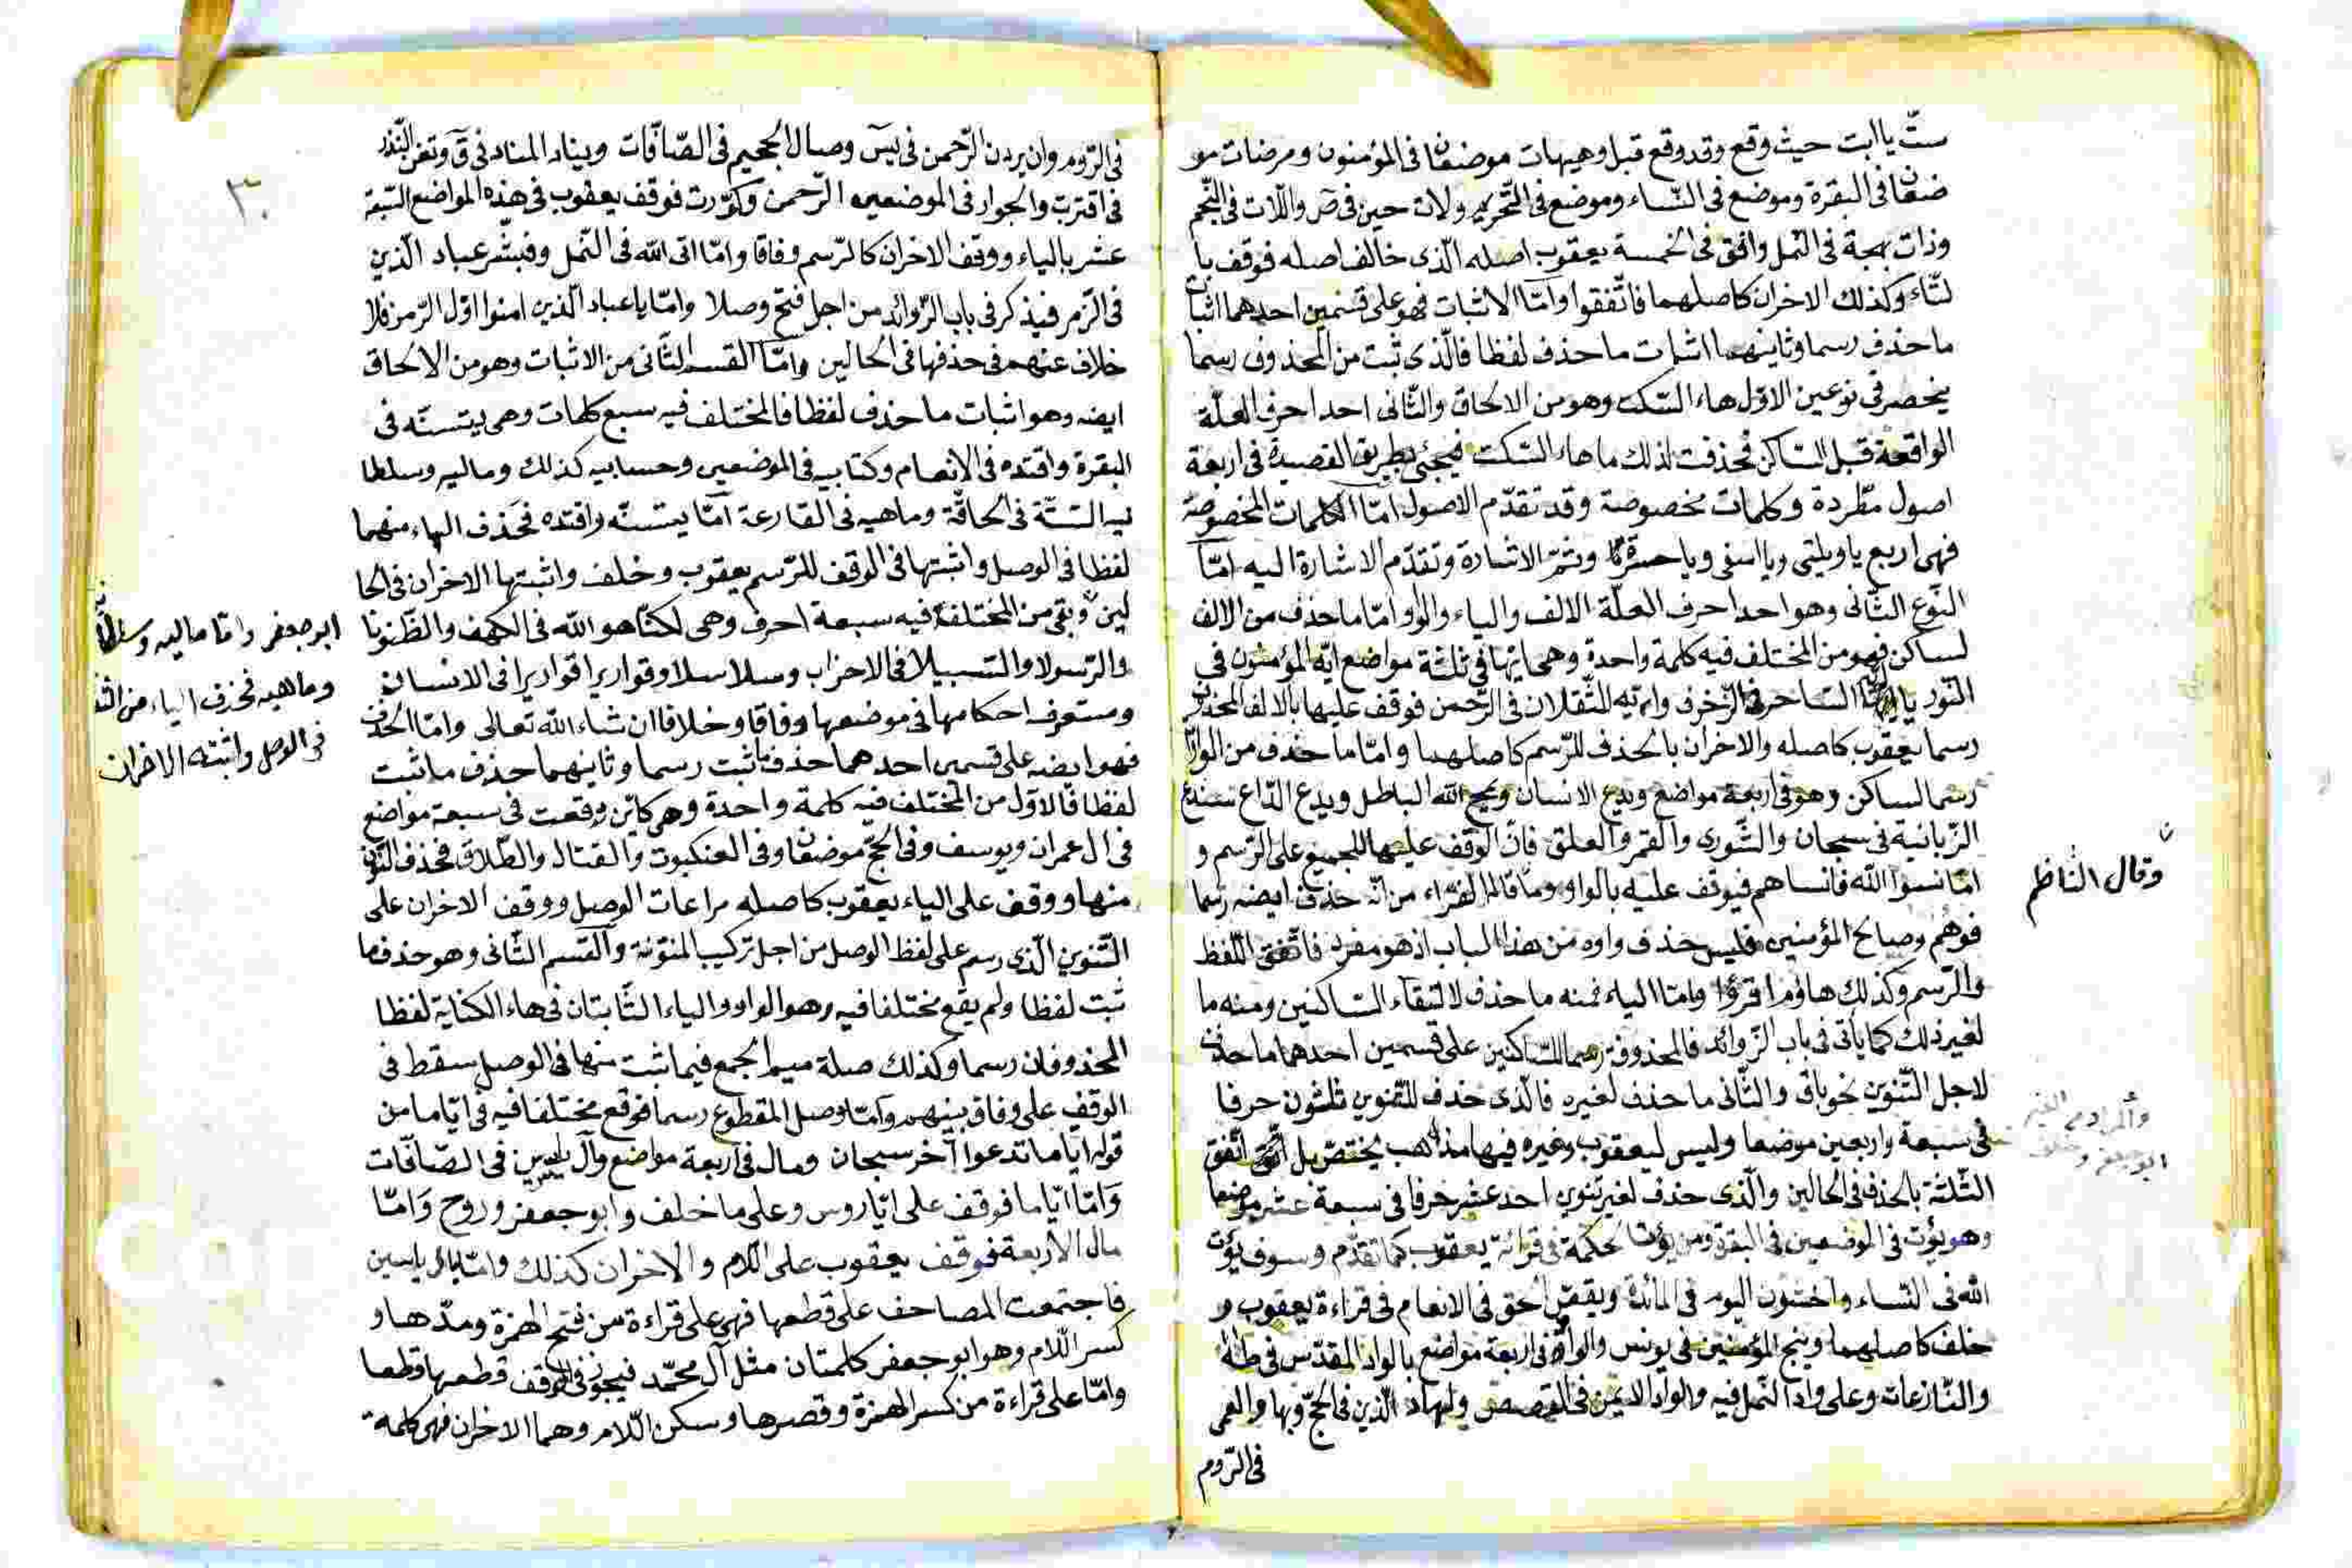 ستّ يا ابت حيث وقع وقد وقع قبل وهيهات موضعان فى المؤمنون ومرضات مو
ضعان فى البقرة وموضع فى النّساء وموضع فى التّحريم ولات حين فى ص واللّات فى النّجم
وذات بهجة فى النّمل وافق فى الخمسة يعقوب اصله الّذى خالف اصله فوقف با
لتّاء وكذلك الاخران كاصلهما فاتّفقوا وامّا الاثبات فهو على قسمين احدهما اثبات
ما حذف رسما وثانيهما اثبات ما حذف لفظا فالّذى ثبت من المحذوف رسما
ينحصر فى نوعين الاوّل هاء السّكت وهو من الالحاق والثّانى احد احرف العلّة
الواقعة قبل السّاكن فحذفت لذلك ما هاء السّكت فيجئ بطريق القصيدة فى اربعة
اصول مطّردة وكلمات مخصوصة وقد تقدّم الاصول امّا الكلمات المخصوصة
فهى اربع يا ويلتى ويا اسفى ويا حسرتى وثمّ الاشارة وتقدّم الاشارة اليه امّا
النّوع الثّانى وهو احد احرف العلّة الالف والياء والواو امّا ما حذف من الالف
لساكن فهو من المختلف فيه كلمة واحدة وهى ايّها فى ثلثة مواضع ايّه المؤمنون فى
النّور يا ايّه السّاحر فى الزّخرف وايّه الثّقلان فى الرّحمن فوقف عليها بالالف المحذوف
رسما يعقوب كاصله والاخران بالحذف للرّسم كاصلهما وامّا ما حذف من الواو
رسما لساكن وهو فى اربعة مواضع ويدع الانسان ويمح اللّه الباطل ويدع الدّاع سندع
الزّبانية فى سبحان والشّورى والقمر والعلق فانّ الوقف عليها للجميع على الرّسم و
امّا نسوا اللّه فانساهم فيوقف عليه بالواو وما قاله الفرّاء من انّه حذف ايضه رسما
فوهم وصالح المؤمنين فليس حذف واوه من هذا الباب اذ هو مفرد فاتّفق اللّفظ
والرّسم وكذلك هاؤم اقرؤا وامّا الياء فمنه ما حذف لالتقاء السّاكنين ومنه ما
لغير ذلك كما يأتى فى باب الزّوائد فالمحذوفة رسما للسّاكنين على قسمين احدهما ما حذف
لاجل التّنوين نحو باق والثّانى ما حذف لغيره فالّذى حذف للتّنوين ثلثون حرفا
فى سبعة واربعين موضعا وليس ليعقوب وغيره فيها مذهب يختصّ بل اتّفق
الثّلثة بالحذف فى الحالين والّذى حذف لغير تنوين احد عشر حرفا فى سبعة عشر موضعا
وهو يؤت فى الموضعين فى البقرة ومن يؤت الحكمة فى قرائة يعقوب كما تقدّم وسوف يؤت
اللّه فى النّساء واخشون اليوم فى المائدة ويقض الحق فى الانعام فى قراءة يعقوب و
خلف كاصلهما وننج المؤمنين فى يونس والواد فى اربعة مواضع بالواد المقدّس فى طه
والنّازعات وعلى واد النّمل فيه والواد الايمن فى القصص ولهاد الّذين فى الحجّ وبهاد العمى
فى الرّوم
وقال النّاظم
والمراد من الغير
ابو جعفر وخلف
٣٠
فى الرّوم وان يردن الرّحمن فى يس وصال الجحيم فى الصّافّات ويناد المناد فى ق وتغن النّذر
فى اقتربت والجوار فى الموضعين الرّحمن وكوّرت فوقف يعقوب فى هذه المواضع السّبعة
عشر بالياء ووقف الاخران كالرّسم وفاقا وامّا اتى اللّه فى النّمل وفبشّر عباد الّذين
فى الزّمر فيذكر فى باب الزّوائد من اجل فتح وصلا وامّا يا عباد الّذين امنوا اوّل الزّمر فلا
خلاف عنهم فى حذفها فى الحالين وامّا القسم الثّانى من الاثبات وهو من الالحاق
ايضه وهو اثبات ما حذف لفظا فالمختلف فيه سبع كلمات وهى يتسنّه فى
البقرة واقتده فى الانعام وكتابيه فى الموضعين وحسابيه كذلك وماليه وسلطا
نيه السّتّة فى الحاقّة وماهيه فى القارعة امّا يتسنّه واقتده فحذف الهاء منهما
لفظا فى الوصل واثبتها فى الوقف للرّسم يعقوب وخلف واثبتها الاخران فى الحا
لين وبقى من المختلفة فيه سبعة احرف وهى لكنّا هو اللّه فى الكهف والظّنونا
والرّسولا والسّبيلا فى الاحزاب وسلاسلا وقواريرا قواريرا فى الانسان
وستعرف احكامها فى موضعها وفاقا وخلافا ان شاء اللّه تعالى وامّا الحذف
فهو ايضه على قسمين احدهما حذف ما ثبت رسما وثانيهما حذف ما ثبت
لفظا فالاوّل من المختلف فيه كلمة واحدة وهى كايّن وقعت فى سبعة مواضع
فى ال عمران ويوسف وفى الحجّ موضعان وفى العنكبوت والقتال والطّلاق فحذف النّون
منها ووقف على الياء يعقوب كاصله مراعات الوصل ووقف الاخران على
التّنوين الّذى رسم على لفظ الوصل من اجل تركيب المنوّنة والقسم الثّانى وهو حذف ما
ثبت لفظا ولم يقع مختلفا فيه وهو الواو والياء الثّابتان فى هاء الكناية لفظا
المحذوفان رسما وكذلك صلة ميم الجمع فيما ثبت منها فى الوصل سقط فى
الوقف على وفاق بينهم وامّا وصل المقطوع رسما فوقع مختلفا فيه فى ايّاما من
قوله ايّاما تدعوا آخر سبحان ومال فى اربعة مواضع وآل ياسين فى الصّافّات
وامّا ايّاما فوقف على ايّا رويس وعلى ما خلف وابو جعفر وروح وامّا
مال الاربعة فوقف يعقوب على اللّام والاخران كذلك وامّا ال ياسين
فاجتمعت المصاحف على قطعها فهى على قراءة من فتح الهمزة ومدّها و
كسر اللّام وهو ابو جعفر كلمتان مثل آل محمّد فيجوز فى الوقف قطعها قطعا
وامّا على قراءة من كسر الهمزة وقصرها وسكن اللّام وهما الاخران فهى كلمة
ابو جعفر وامّا ماليه وسلطانيه
وماهيه فحذف الهاء من الثلثة
فى الوصل واثبته الاخران